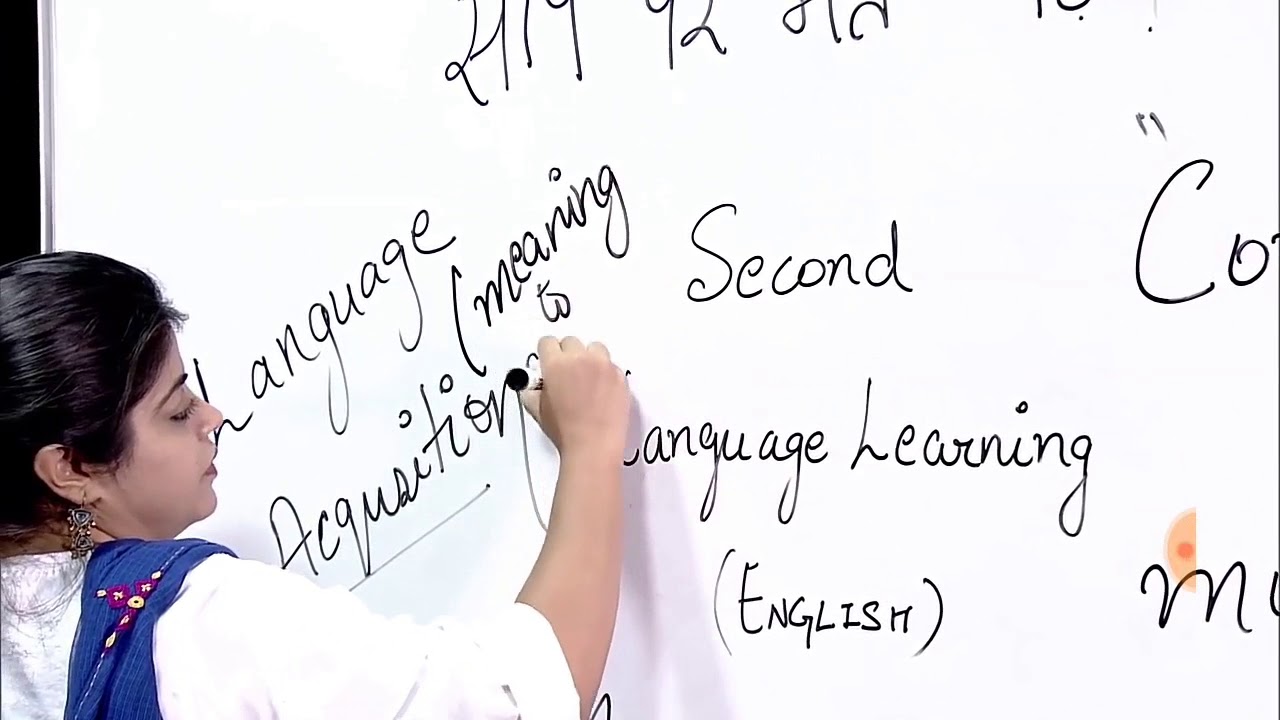 साँप पर मत
"
Language
(meaning
to
Acqusition
Second
Language Learning
(ENGLISH)